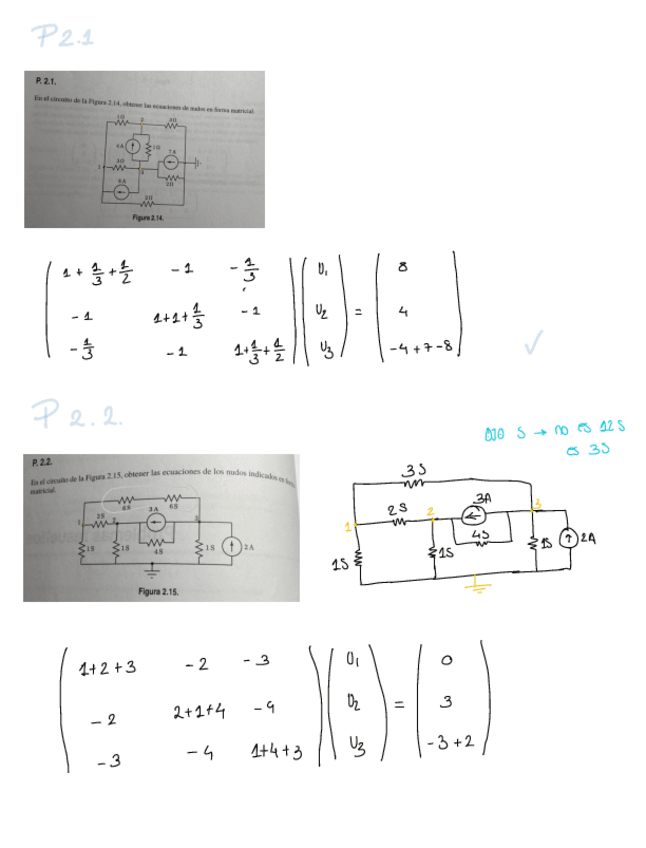 P2.1
P. 2.1.
En el circuito de la Figura 2.14, obtener las ecuaciones de nudos en forma matricial.
1Ω 2 3Ω
4A 1Ω 7A
1 3Ω 3
8A 2Ω
2Ω
Figura 2.14.
1 + 1/3 + 1/2 -1 -1/3 U1 8
-1 1+1+1/3 -1 U2 = 4
-1/3 -1 1+1/3+1/2 U3 -4+7-8
✓
P 2.2.
OJO S → no es 12 S
es 3S
P. 2.2.
En el circuito de la Figura 2.15, obtener las ecuaciones de los nudos indicados en forma
matricial.
6S 6S
1 2S 2 3A 3
1S 1S 4S 1S 2A
Figura 2.15.
3S
1 2S 2 3A 3
1S 1S 4S 1S 2A
1+2+3 -2 -3 U1 0
-2 2+1+4 -4 U2 = 3
-3 -4 1+4+3 U3 -3+2